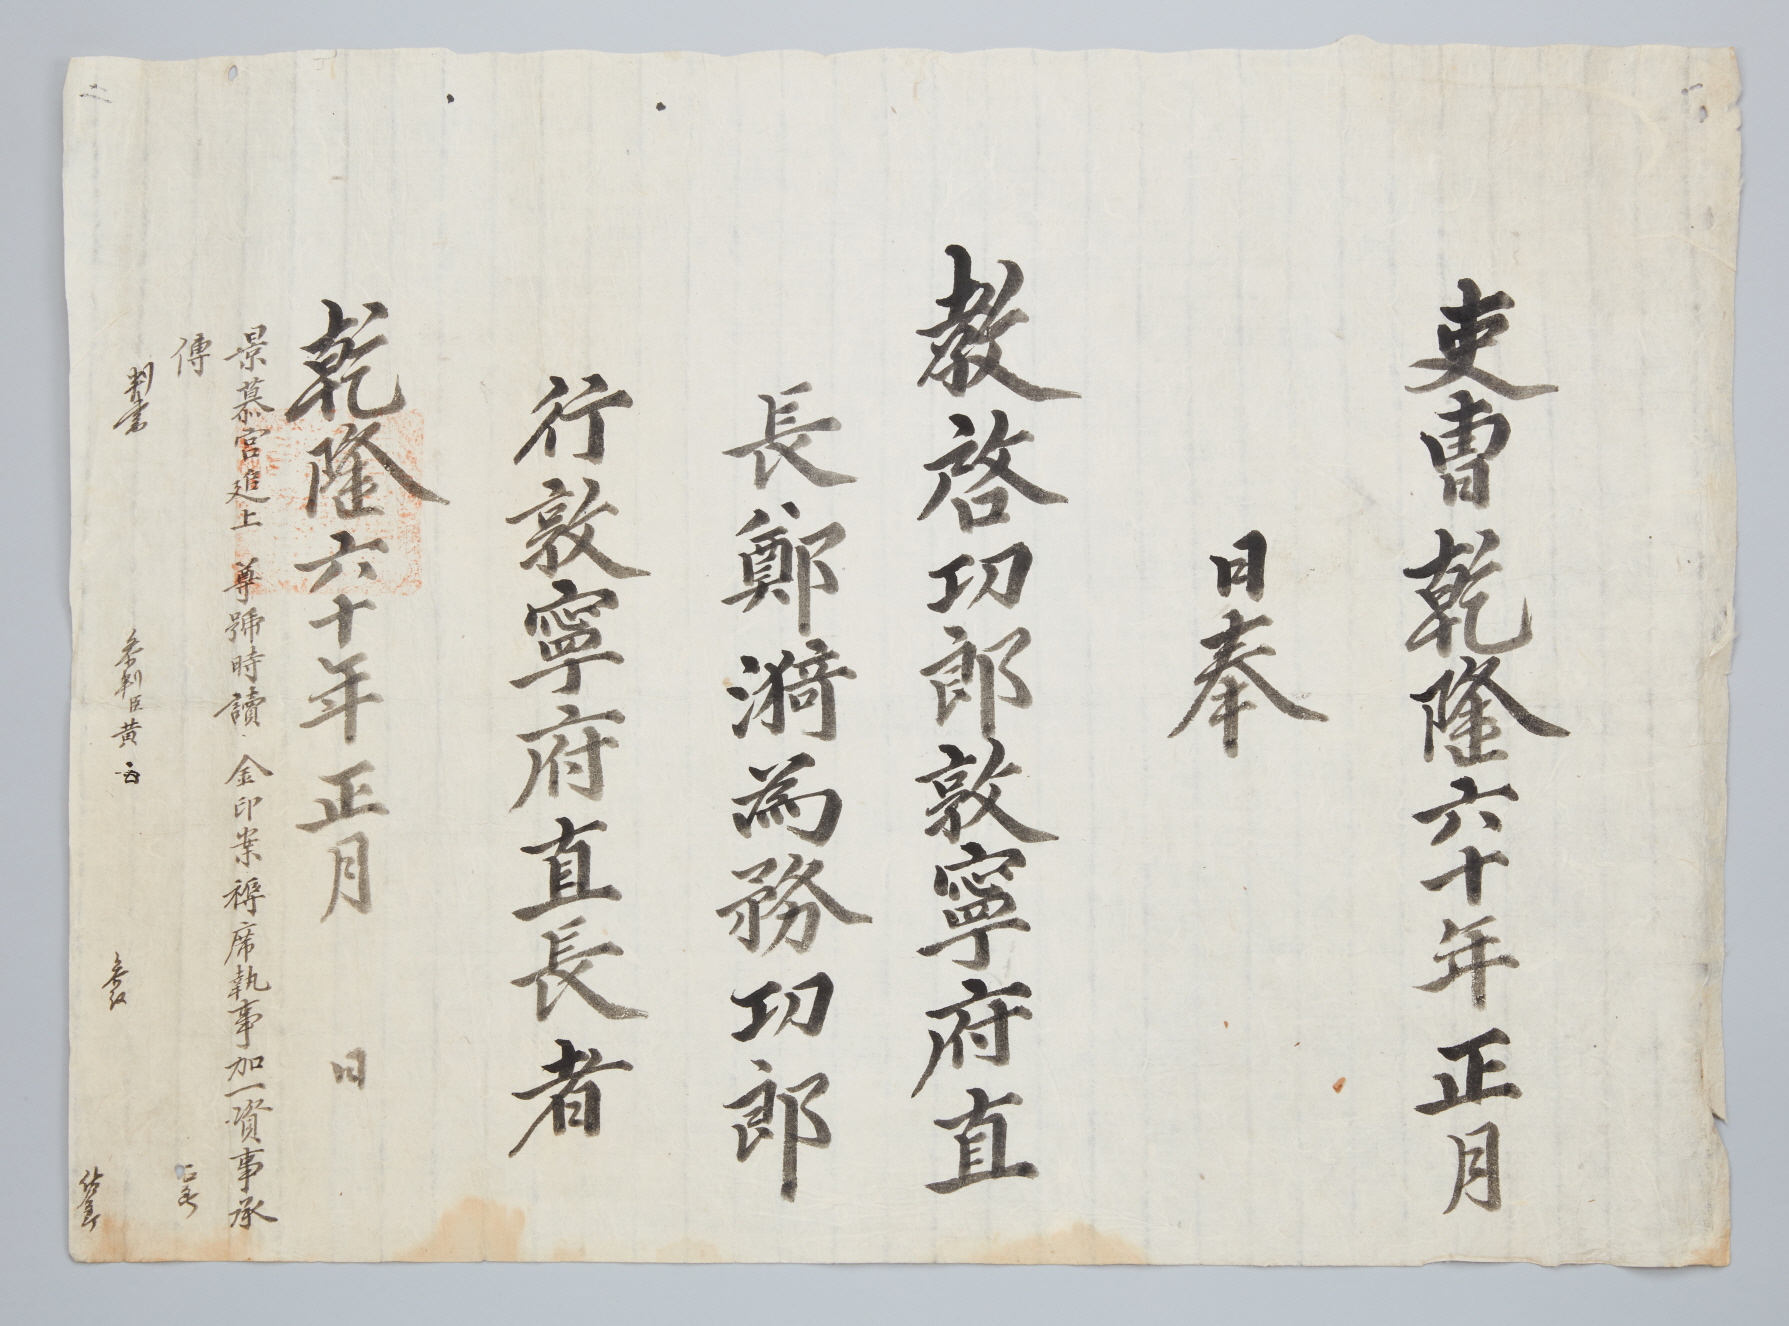 吏曹乾隆六十年正月
日奉
教啓功郎敦寧府直
長鄭漪為務功郎
行敦寧府直長者
乾隆六十年正月 日
景慕宮追上 尊號時讀 金印案褥席執事加一資事承
傳
判書
參判臣黃
參議
正郎
佐郎